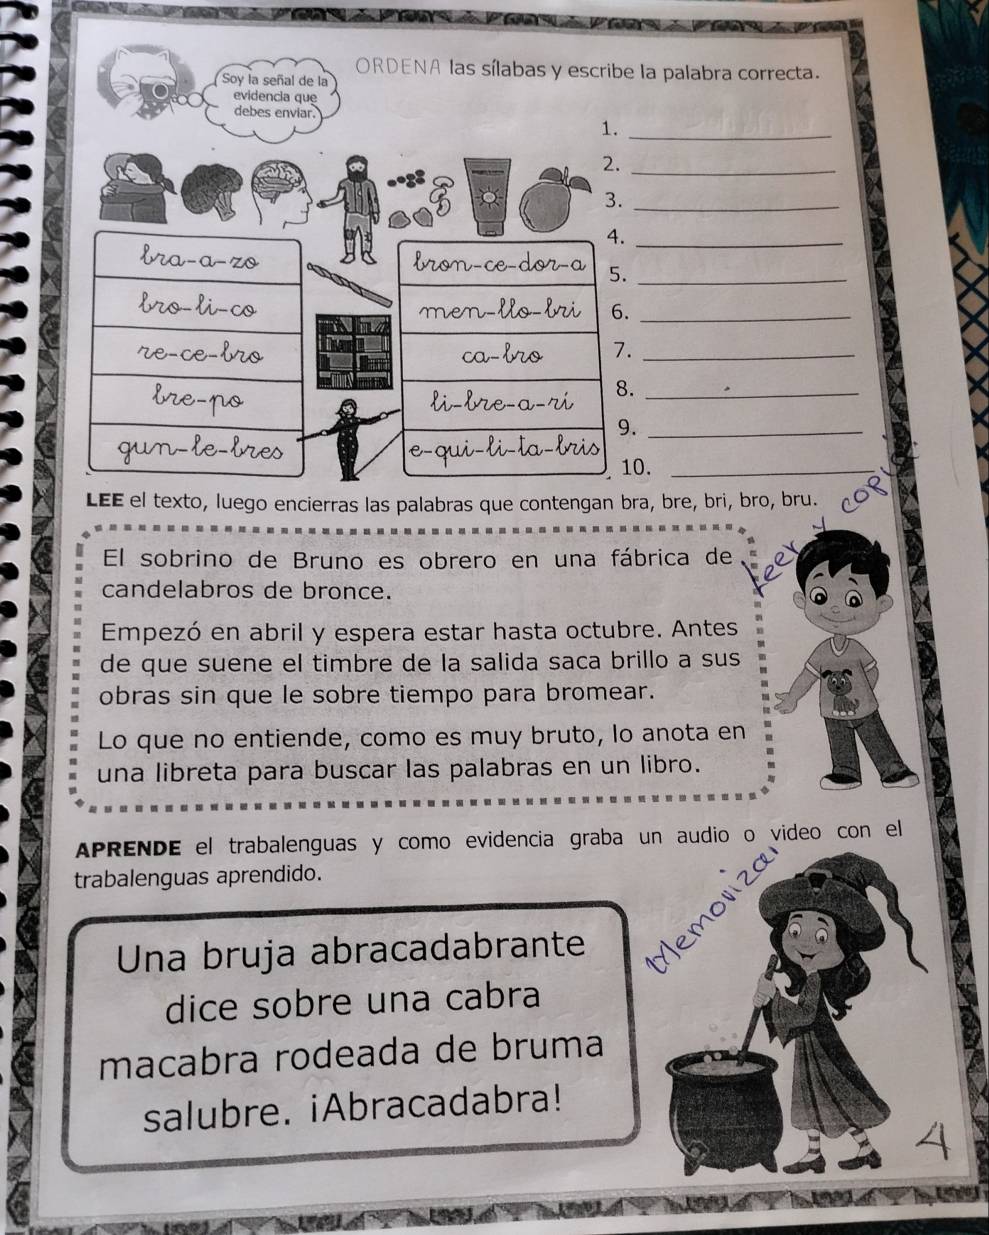 Soy la señal de la
evidencia que
debes enviar.
ORDENA las sílabas y escribe la palabra correcta.
1.
2.
3.
4.
5.
6.
7.
8.
9.
10.
bra-a-zo
bro-li-co
re-ce-bro
bre-po
gun-le-bres
bron-ce-dor-a
men-llo-bri
ca-bro
li-bre-a-rí
e-qui-li-ta-bris
LEE el texto, luego encierras las palabras que contengan bra, bre, bri, bro, bru.
Leer y copiar
El sobrino de Bruno es obrero en una fábrica de
candelabros de bronce.
Empezó en abril y espera estar hasta octubre. Antes
de que suene el timbre de la salida saca brillo a sus
obras sin que le sobre tiempo para bromear.
Lo que no entiende, como es muy bruto, lo anota en
una libreta para buscar las palabras en un libro.
APRENDE el trabalenguas y como evidencia graba un audio o video con el
trabalenguas aprendido.
Memorizar
Una bruja abracadabrante
dice sobre una cabra
macabra rodeada de bruma
salubre. ¡Abracadabra!
4